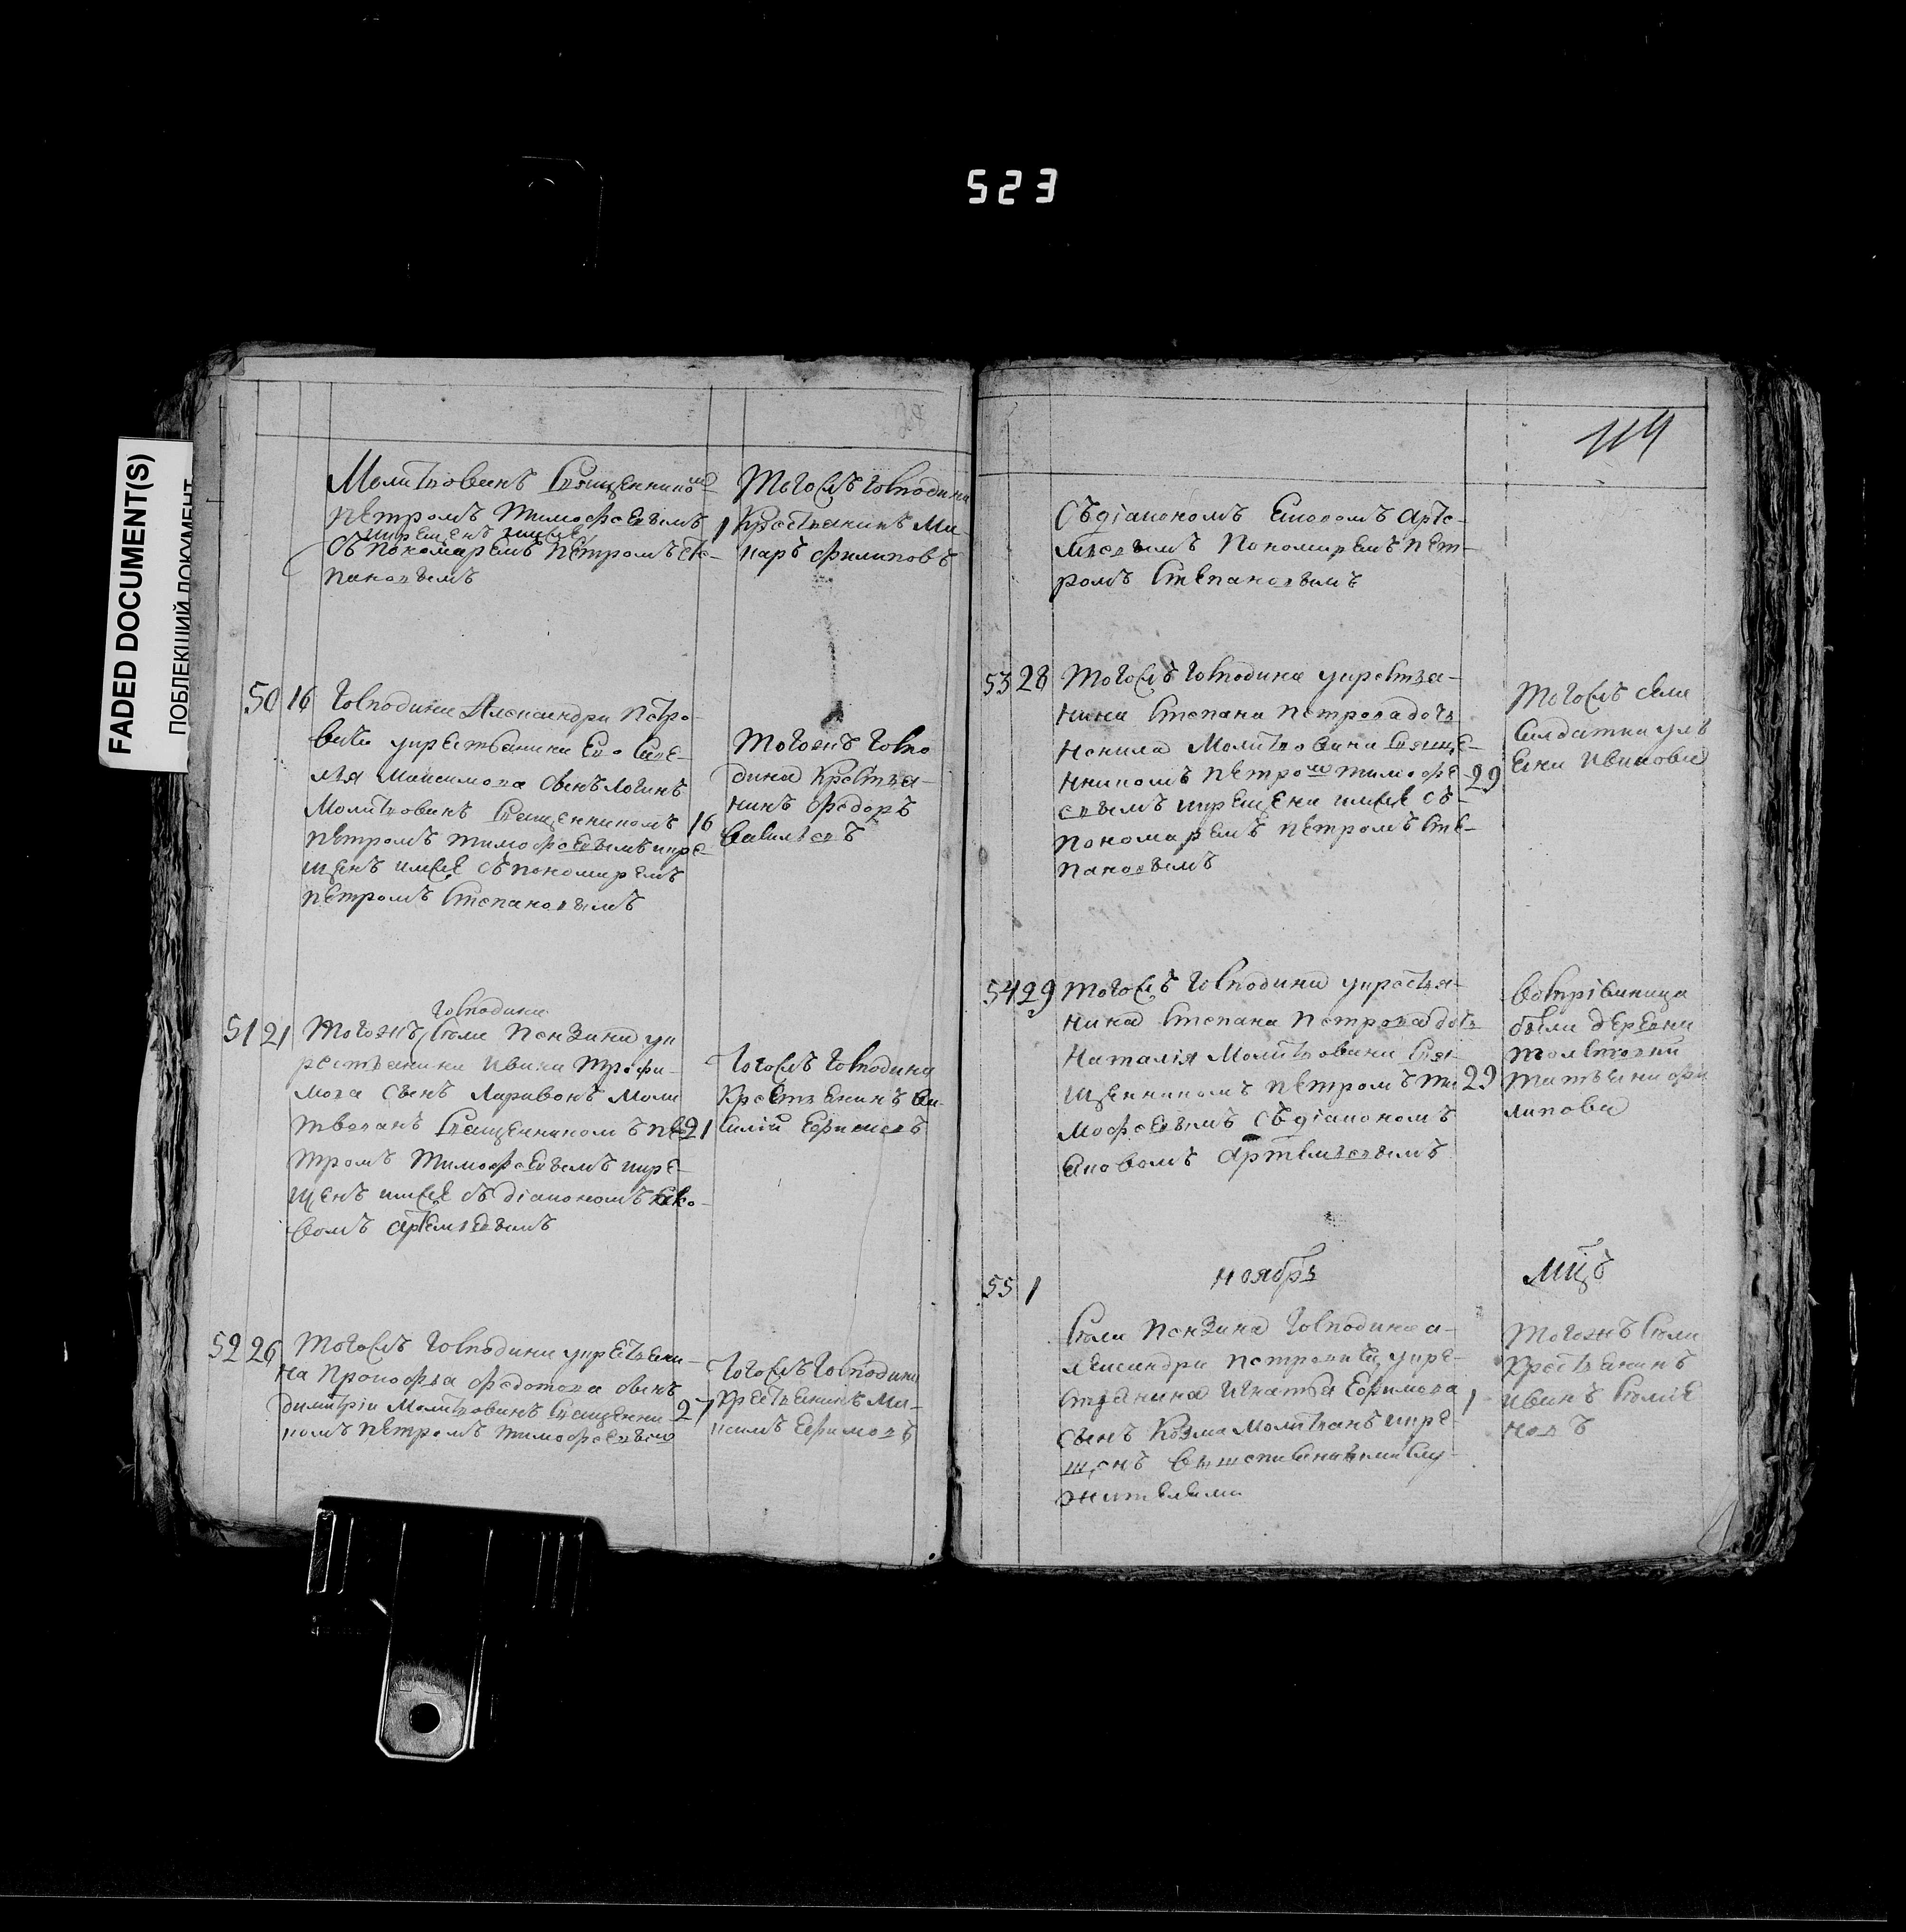 523
FADED DOCUMENT(S)
ПОБЛЕКШИЙ ДОКУМЕНТ
Молитвованъ Священником
Петромъ Тимофеевымъ
крещенъ имже
съ пономаремъ Петромъ Сте-
пановымъ
1
Тогожъ господина
Крестьянинъ Ма-
каръ Филиповъ
50 16
Господина Александра Петро-
вича у крестьянина Ево Саве-
лья Максимова сынъ Логинъ
Молитвованъ Священникомъ
Петромъ Тимофеевымъ кре-
щенъ имже съ пономаремъ
Петромъ Степановымъ
16
Тогожъ Госпо
дина Крестья-
нинъ Федоръ
Савельевъ
51 21
господина
Тогожъ Села Пензина у к
рестьянина Ивана Трофи-
мова сынъ Ларивонъ Моли
твованъ Священникомъ Пе
тромъ Тимофеевымъ кре-
щенъ имже съ діакономъ Яко-
вомъ Артемьевымъ
21
Тогожъ Господина
Крестьянинъ Ва-
силій
52 26
Тогожъ Господина у крестьяни-
на Прокофья Федотова сынъ
Димитріи Молитвованъ Священни
комъ Петромъ Тимофеевым
27
Тогожъ Господина
Крестьянинъ Ма-
ксимъ Ефимовъ
119
Съ діакономъ Яковомъ Арте-
мьевымъ Пономаремъ Пет-
ромъ Степановымъ
53 28
Тогожъ Господина у крестья-
нина Степана Петрова дочь
Ненила Молитвована Свяще-
нникомъ Петром Тимофе-
евымъ крещена имже съ
пономаремъ Петромъ Сте-
пановымъ
29
Тогожъ села
Салдатка Уль
яна Иванова
54 29
Тогожъ Господина у крестья-
нина Степана Петрова дочь
Наталія Молитвована Свя-
щенникомъ Петромъ Ти
мофеевымъ Съ діакономъ
Яковомъ Артемьевымъ
29
Воспріемница
была деревни
Татьяна Фи
липова
Ноябрь Мцъ
55 1
Села Пензина Господина а-
лександра Петровича у кре-
стьянина Игнатья Ефимова
сынъ Козма Молитванъ кре-
щенъ вышеписанными слу-
жителями
1
Тогожъ Села
Крестьянинъ
Иванъ Семіо
новъ